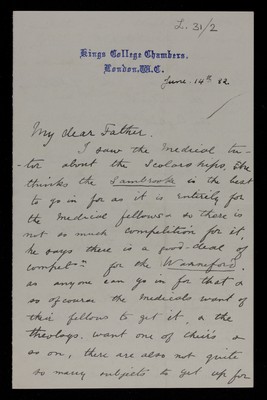 L. 31/2
Kings College Chambers,
London, W.C.
June. 14th 82
My dear Father.
I saw the medical tu-
-tor about the Scolarships, he
thinks the Sambrooke is the best
to go in for as it is entirely for
the medical fellows & so there is
not so much competition for it,
he says there is a good-deal of
compet.n for the Warneford.
as anyone can go in for that &
as of course the medicals want of
their fellows to get it, & the
theologs. want one of theirs &
so on, there are also not quite
so many subjects to get up for